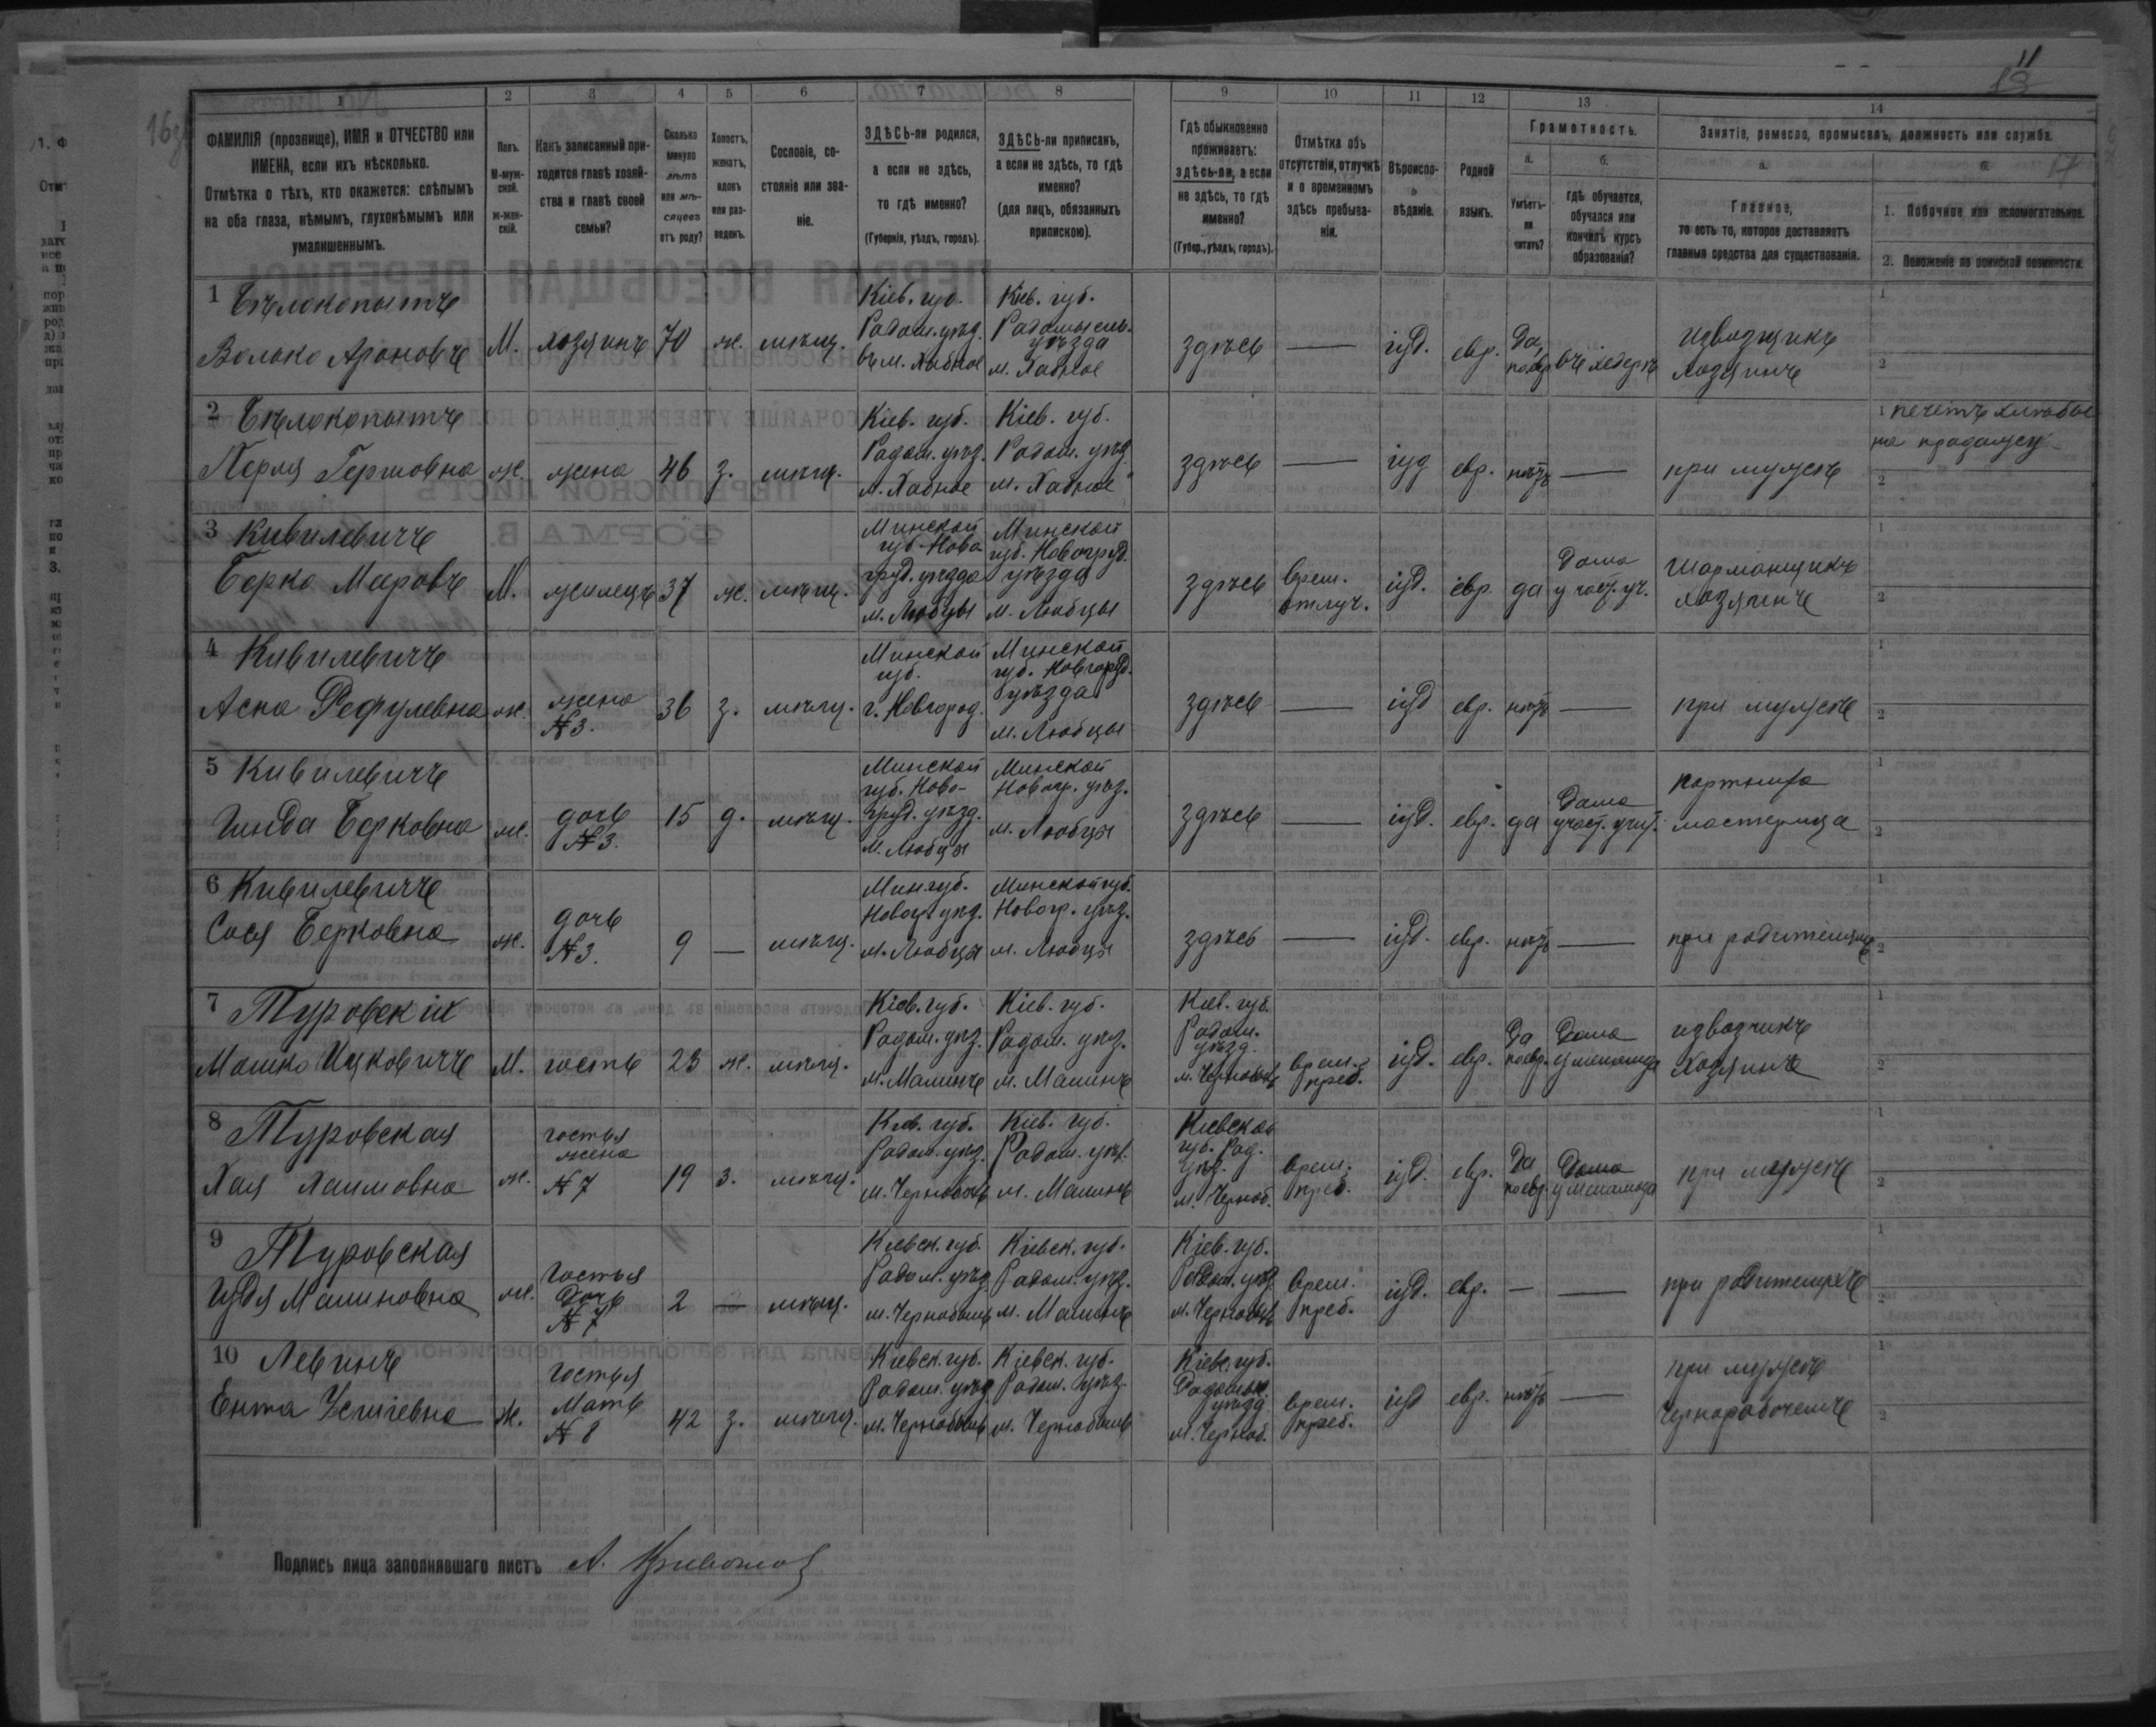 11
13
16об
17
1 2 3 4 5 6 7 8 9 10 11 12 13 14
ФАМИЛІЯ (прозвище), ИМЯ и ОТЧЕСТВО или ИМЕНА, если ихъ нѣсколько.
Отмѣтка о тѣхъ, кто окажется: слѣпымъ на оба глаза, нѣмымъ, глухонѣмымъ или умалишеннымъ.
Полъ. М-мужской. Ж-женскій.
Какъ записанный приходится главѣ хозяйства и главѣ своей семьи?
Сколько минуло лѣтъ или мѣсяцевъ отъ роду?
Холостъ, женатъ, вдовъ или разведенъ.
Сословіе, состояніе или званіе.
ЗДѢСЬ-ли родился, а если не здѣсь, то гдѣ именно? (Губернія, уѣздъ, городъ).
ЗДѢСЬ-ли приписанъ, а если не здѣсь, то гдѣ именно? (для лицъ, обязанныхъ припискою).
Гдѣ обыкновенно проживаетъ: здѣсь-ли, а если не здѣсь, то гдѣ именно? (Губер., уѣздъ, городъ).
Отмѣтка объ отсутствіи, отлучкѣ и о временномъ здѣсь пребываніи.
Вѣроисповѣданіе.
Родной языкъ.
Грамотность.
а. Умѣетъ-ли читать?
б. гдѣ обучается, обучался или кончилъ курсъ образованія?
Занятіе, ремесло, промыселъ, должность или служба.
а. Главное, то есть то, которое доставляетъ главныя средства для существованія.
б.
1. Побочное или вспомогательное.
2. Положеніе по воинской повинности.
1 Бѣлокопытъ
Волько Ароновъ М. хозяинъ 70 ж. мѣщ. Кіев. губ. Радом. уѣзд. въ м. Хабное Кіев. губ. Радомысль. уѣзда м. Хабное здѣсь — іуд. евр. Да, по евр въ хедерѣ извозщикъ хозяинъ
2 Бѣлокопытъ
Перля Гершовна ж. жена 46 з. мѣщ. Кіев. губ. Радом. уѣзд. м. Хабное Кіев. губ. Радом. уѣзд. м. Хабное здѣсь — іуд евр. нѣтъ — при мужѣ печетъ хлѣбы на продажу
3 Кивилевичъ
Берко Меровъ М. жилецъ 37 ж. мѣщ. Минской губ. Новогруд. уѣзда м. Любцы Минской губ. Новогруд. уѣзда м. Любцы здѣсь врем. отлуч. іуд. евр. да Дома у част. уч. Шарманщикъ хозяинъ
4 Кивилевичъ
Асна Рефулевна ж. жена №3. 36 з. мѣщ. Минской губ. г. Новгород. Минской губ. Новгоруд. уѣзда м. Любцы здѣсь — іуд евр. нѣтъ — при мужѣ
5 Кивилевичъ
Гинда Берковна ж. дочь №3. 15 д. мѣщ. Минской губ. Новогруд. уѣзд. м. Любцы Минской Новогр. уѣз. м. Любцы здѣсь — іуд. евр. да Дома у част. учит. портниха мастерица
6 Кивилевичъ
Сося Берковна ж. дочь №3. 9 — мѣщ. Мин. губ. Новогр. уѣз. м. Любцы Минской губ. Новогр. уѣз. м. Любцы здѣсь — іуд. евр. нѣтъ — при родителяхъ
7 Туровскій
Мошко Ицковичъ М. гость 23 ж. мѣщ. Кіев. губ. Радом. уѣз. м. Малинъ Кіев. губ. Радом. уѣз. м. Малинъ Кіев. губ. Радом. уѣзд. м. Чернобыль врем. преб. іуд. евр. Да по евр. Дома у меламеда извозчикъ хозяинъ
8 Туровская
Хая Хаимовна ж. гостья жена №7 19 з. мѣщ. Кіев. губ. Радом. уѣз. м. Чернобыль Кіев. губ. Радом. уѣз. м. Малинъ Кіевской губ. Рад. уѣз. м. Черноб. врем. преб. іуд. евр. Да по евр. Дома у меламеда при мужѣ
9 Туровская
Идя Малиновна ж. Гостья Дочь №7 2 — мѣщ. Кіевск. губ. Радом. уѣзд. м. Чернобыль Кіевск. губ. Радом. уѣзд. м. Малинъ Кіев. губ. Радом. уѣзд м. Чернобыль врем. преб. іуд. евр. — — при родителяхъ
10 Левинъ
Ента ж. Гостья Мать №8 42 з. мѣщ. Кіевск. губ. Радом. уѣзд м. Чернобыль Кіевск. губ. Радом. уѣзд. м. Чернобыль Кіевс. губ. Радомыс. уѣзд м. Черноб. врем. преб. іуд евр. нѣтъ — при мужѣ чернорабочемъ
Подпись лица заполнявшаго листъ А.